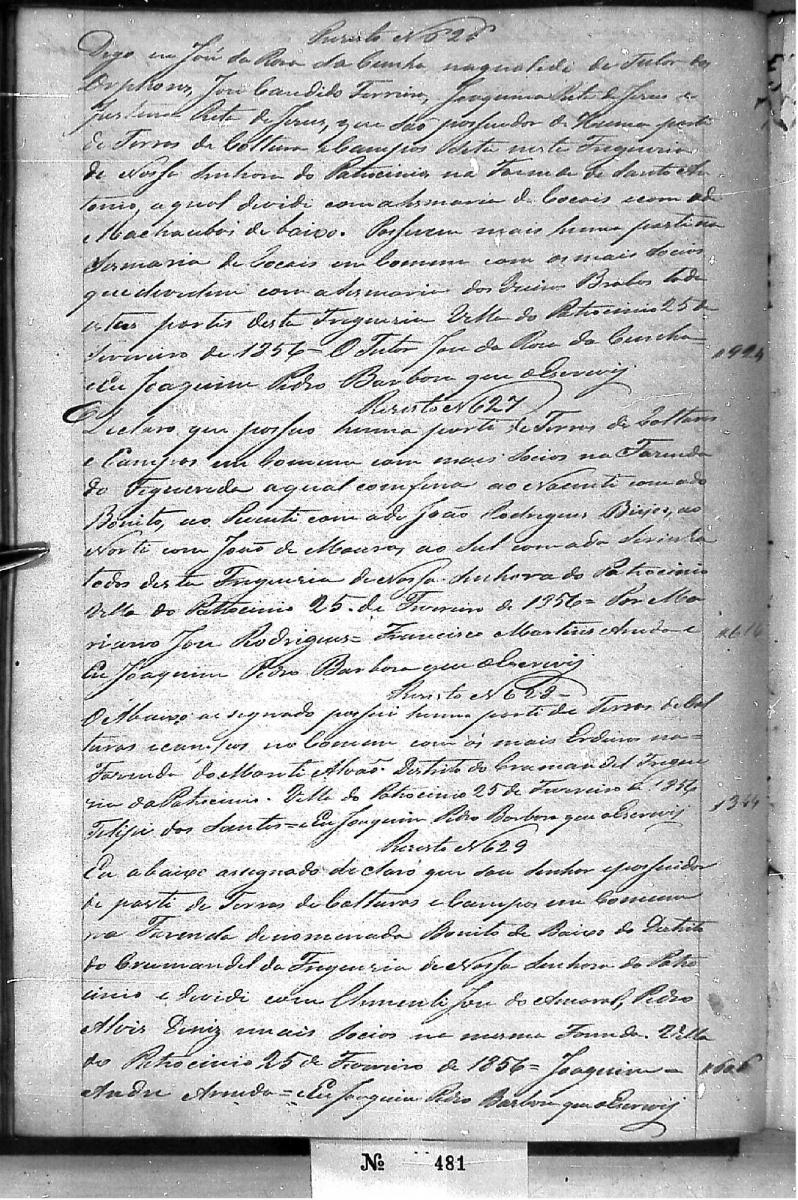 Rezisto Nº 626
Digo eu José da Roza da Cunha na qualidi de Tutor dos
Orphons, José Candido Ferreira, Joaquina Rita de Jezus e
Rita de Jezus, que são possuidor de Huma parte
de Terras de Coltura e Campos desta nesta Fregueria
de Nossa Senhora do Patrocinio na Fazenda de Santo An
tonio, a qual devidi com a Sesmaria de Cocais e com a de
Machaubos de baixo. Possuem mais huma parti na
Sesmaria de Cocais em Comum com os mais Socios
que devidem com a Sesmaria dos Brabos todas
estas partes desta Fregueria Villa do Patrocinio 25 de
Fevereiro de 1856 = O Tutor José da Roza da Cunha =
e Eu Joaquim Pedro Barboza que o Escrevij
nº 924
Rezisto Nº 627
Declaro que possuo huma parte de Terras de Colturas
e Campos em Comum com mais Socios na Fazenda
do Figuereda a qual confina ao Nacente com a do
Bonito, ao Puente com a de João Rodrigues, ao
Norte com João de Mouros, ao Sul com a da Serinha
todos desta Fregueria de Nossa Senhora do Patrocinio
Villa do Patrocinio 25 de Fevereiro de 1956 = Por Ma
riano José Rodrigues = Francisco Martins Arruda e
Eu Joaquim Pedro Barboza que o Escrevij
nº 616
Rezisto Nº 628 =
O Abaixo asegnado possui huma parti de Terras de Col
turas e campos no Comum com os mais Erdeiros na =
Fazenda do Monti Alvaõ. Destrito do Cramandel Fregue
ria da Patrocinio. Villa do Patrocinio 25 de Fevereiro de 1956
Felipi dos Santos = e Eu Joaquim Pedro Barboza que o Escrevij
1344
Rezisto Nº 629
Eu abaixo assegnado declaro que sou Senhor e possuidor
de parte de Terras de Colturas e Campos em Comum
na Fazenda denomenada Bonito de Baixo do Destrito
do Cramandel da Fregueria de Nossa Senhora do Patro
cinio e devidi com Clementi José do Amaral, Pedro
Alvis Diniz e mais Socios na mesma Fazenda. Villa
do Patrocinio 25 de Fevereiro de 1856 = Joaquim =
Andre Arruda = e Eu Joaquim Pedro Barboza que o Escrevij
nº 606
Nº 481